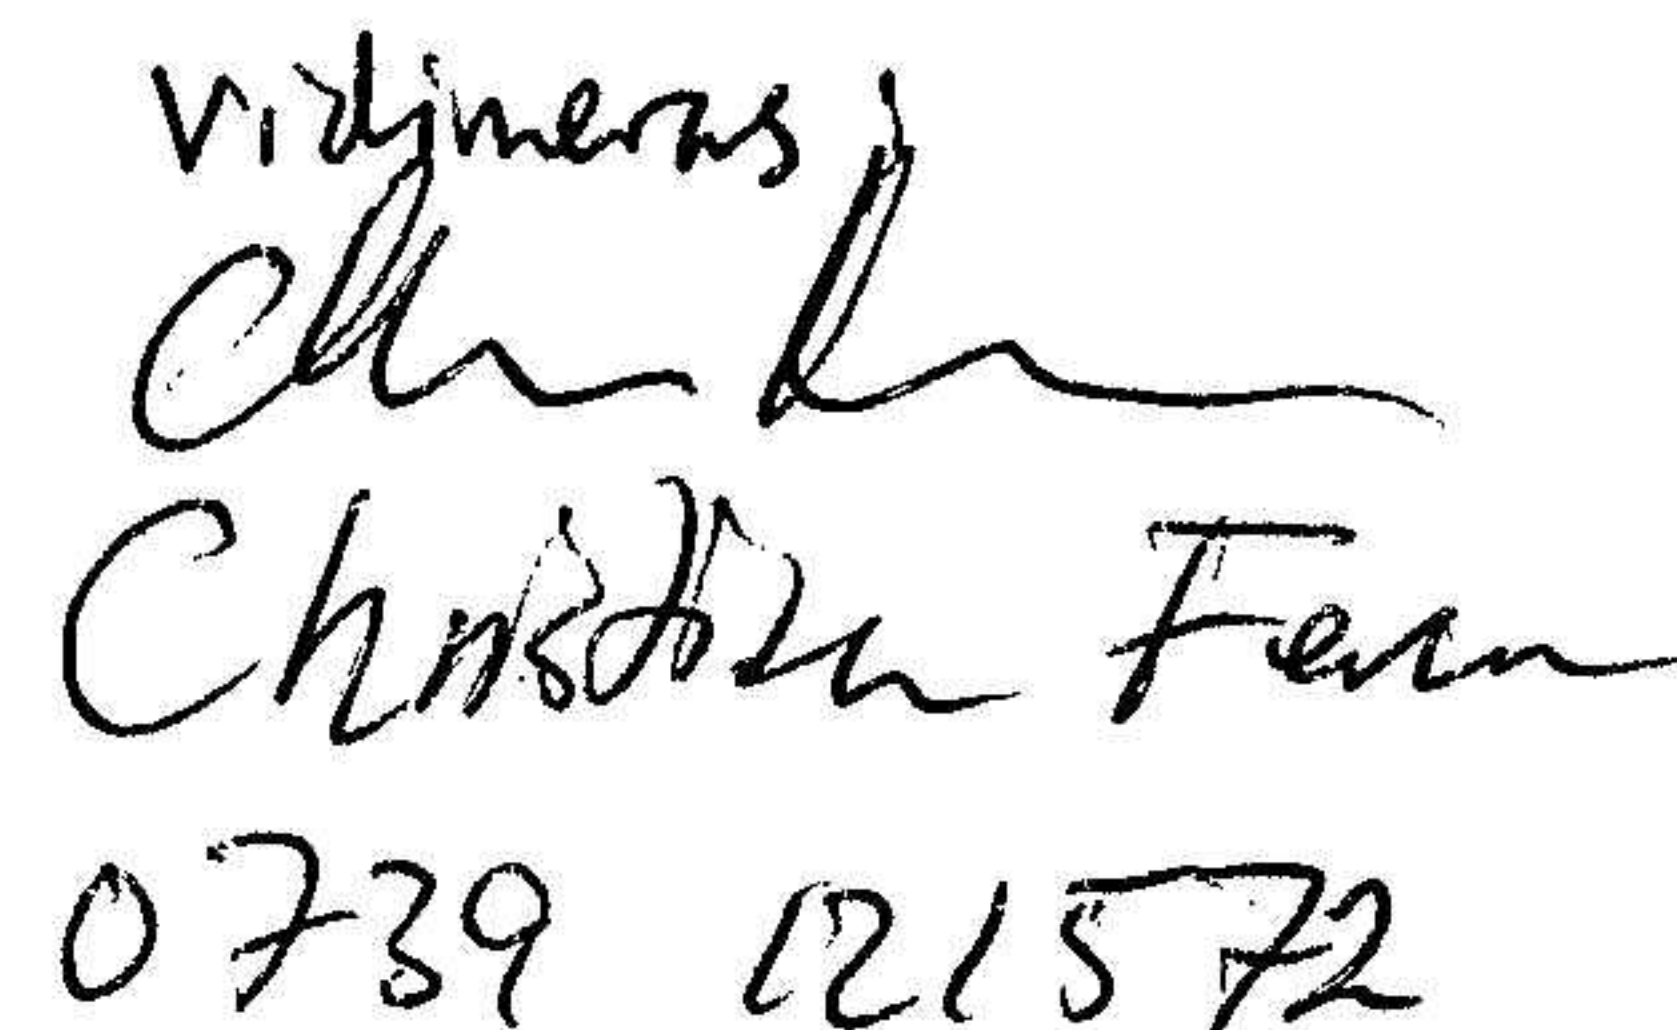 Vidimeras
Christian Feran
0739 121572